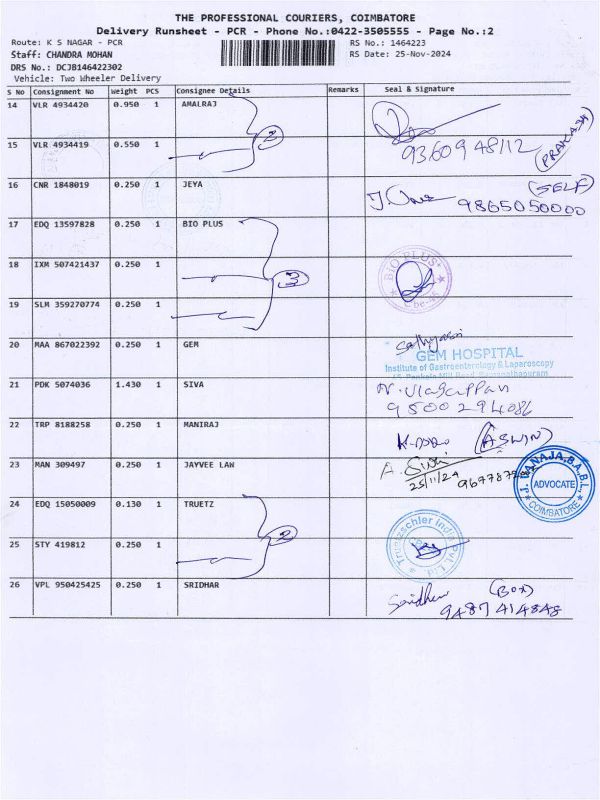 THE PROFESSIONAL COURIERS, COIMBATORE
Delivery Runsheet - PCR - Phone No.:0422-3505555 - Page No.:2
Route: K S NAGAR - PCR RS No.: 1464223
Staff: CHANDRA MOHAN RS Date: 25-Nov-2024
DRS No.: DCJB146422302
Vehicle: Two Wheeler Delivery
S No Consignment No Weight PCS Consignee Details Remarks Seal & Signature
14 VLR 4934420 0.950 1 AMALRAJ
2
15 VLR 4934419 0.550 1 9360948112 (PRAKASH)
16 CNR 1848019 0.250 1 JEYA (SELF)
9865050000
17 EDQ 13597828 0.250 1 BIO PLUS
18 IXM 507421437 0.250 1 3 BIO PLUS
19 SLM 359270774 0.250 1
20 MAA 867022392 0.250 1 GEM
GEM HOSPITAL
Institute of Gastroenterology & Laparoscopy
21 PDK 5074036 1.430 1 SIVA
9500294086
22 TRP 8188258 0.250 1 MANIRAJ (ASWIN)
23 MAN 309497 0.250 1 JAYVEE LAW
25/11/24
J. VANAJA, B.A.B.L.
ADVOCATE
COIMBATORE
24 EDQ 15050009 0.130 1 TRUETZ
2 Truetzschler India Pvt. Ltd.
25 STY 419812 0.250 1
26 VPL 950425425 0.250 1 SRIDHAR Sridhar (BOX)
9487414848